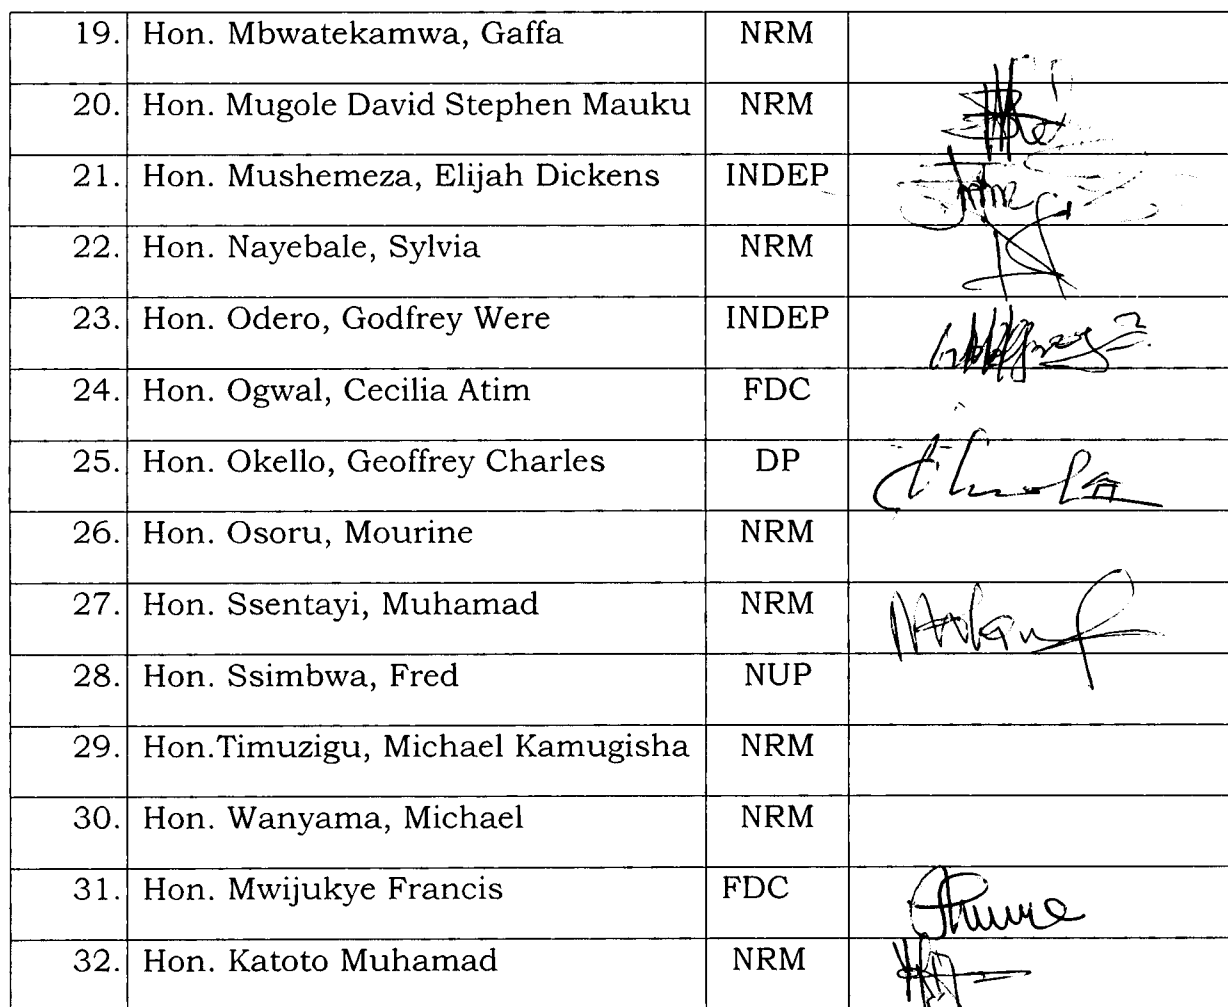 19. Hon. Mbwatekamwa, Gaffa NRM
20. Hon. Mugole David Stephen Mauku NRM
21. Hon. Mushemeza, Elijah Dickens INDEP
22. Hon. Nayebale, Sylvia NRM
23. Hon. Odero, Godfrey Were INDEP
24. Hon. Ogwal, Cecilia Atim FDC
25. Hon. Okello, Geoffrey Charles DP
26. Hon. Osoru, Mourine NRM
27. Hon. Ssentayi, Muhamad NRM
28. Hon. Ssimbwa, Fred NUP
29. Hon.Timuzigu, Michael Kamugisha NRM
30. Hon. Wanyama, Michael NRM
31. Hon. Mwijukye Francis FDC
32. Hon. Katoto Muhamad NRM